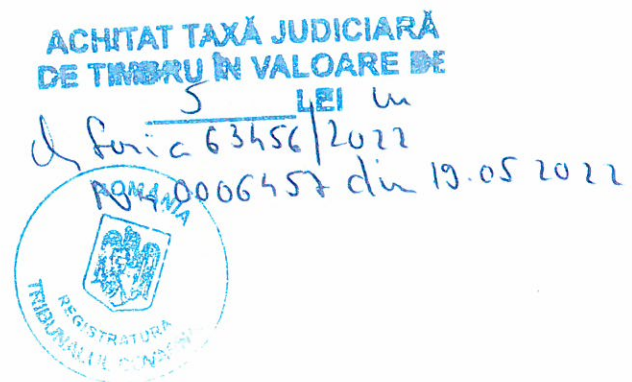 ACHITAT TAXĂ JUDICIARĂ
DE TIMBRU ÎN VALOARE DE
5 LEI
63456/2022
0006457 din 19.05 2022
ROMÂNIA
REGISTRATURA
TRIBUNALUL COVASNA